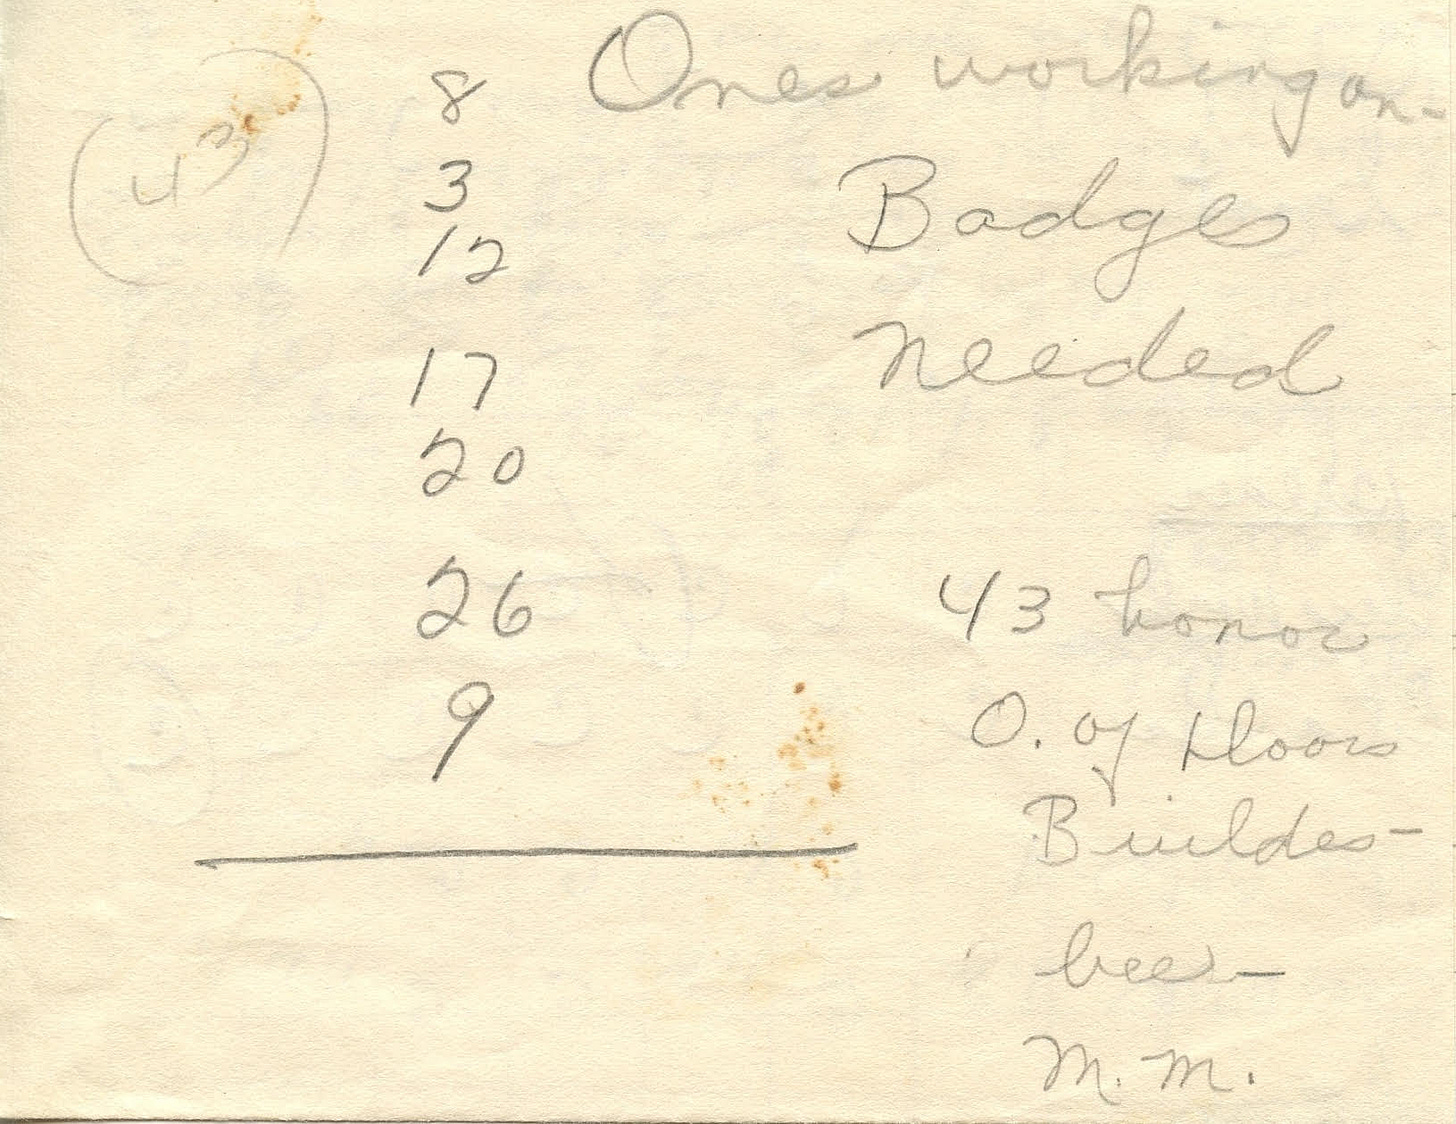 8 Ones working on-
(43)
3 Badges
12
17 needed
20
26 43 honor
9 O. of Doors
Buildes-
bees-
M. M.